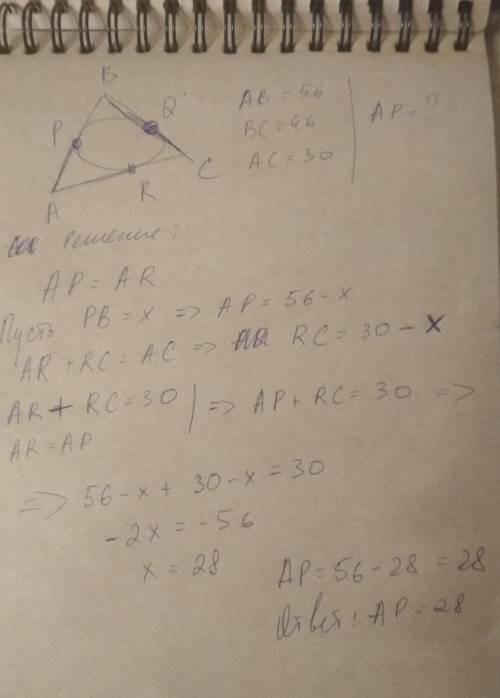 B
Q
P
C
A
R
AB = 56
BC = 46
AC = 30
AP = ?
Решение:
AP = AR
Пусть PB = x => AP = 56 - x
AR + RC = AC => RC = 30 - x
AR + RC = 30
AR = AP
=> AP + RC = 30 =>
=> 56 - x + 30 - x = 30
-2x = -56
x = 28
AP = 56 - 28 = 28
Ответ: AP = 28